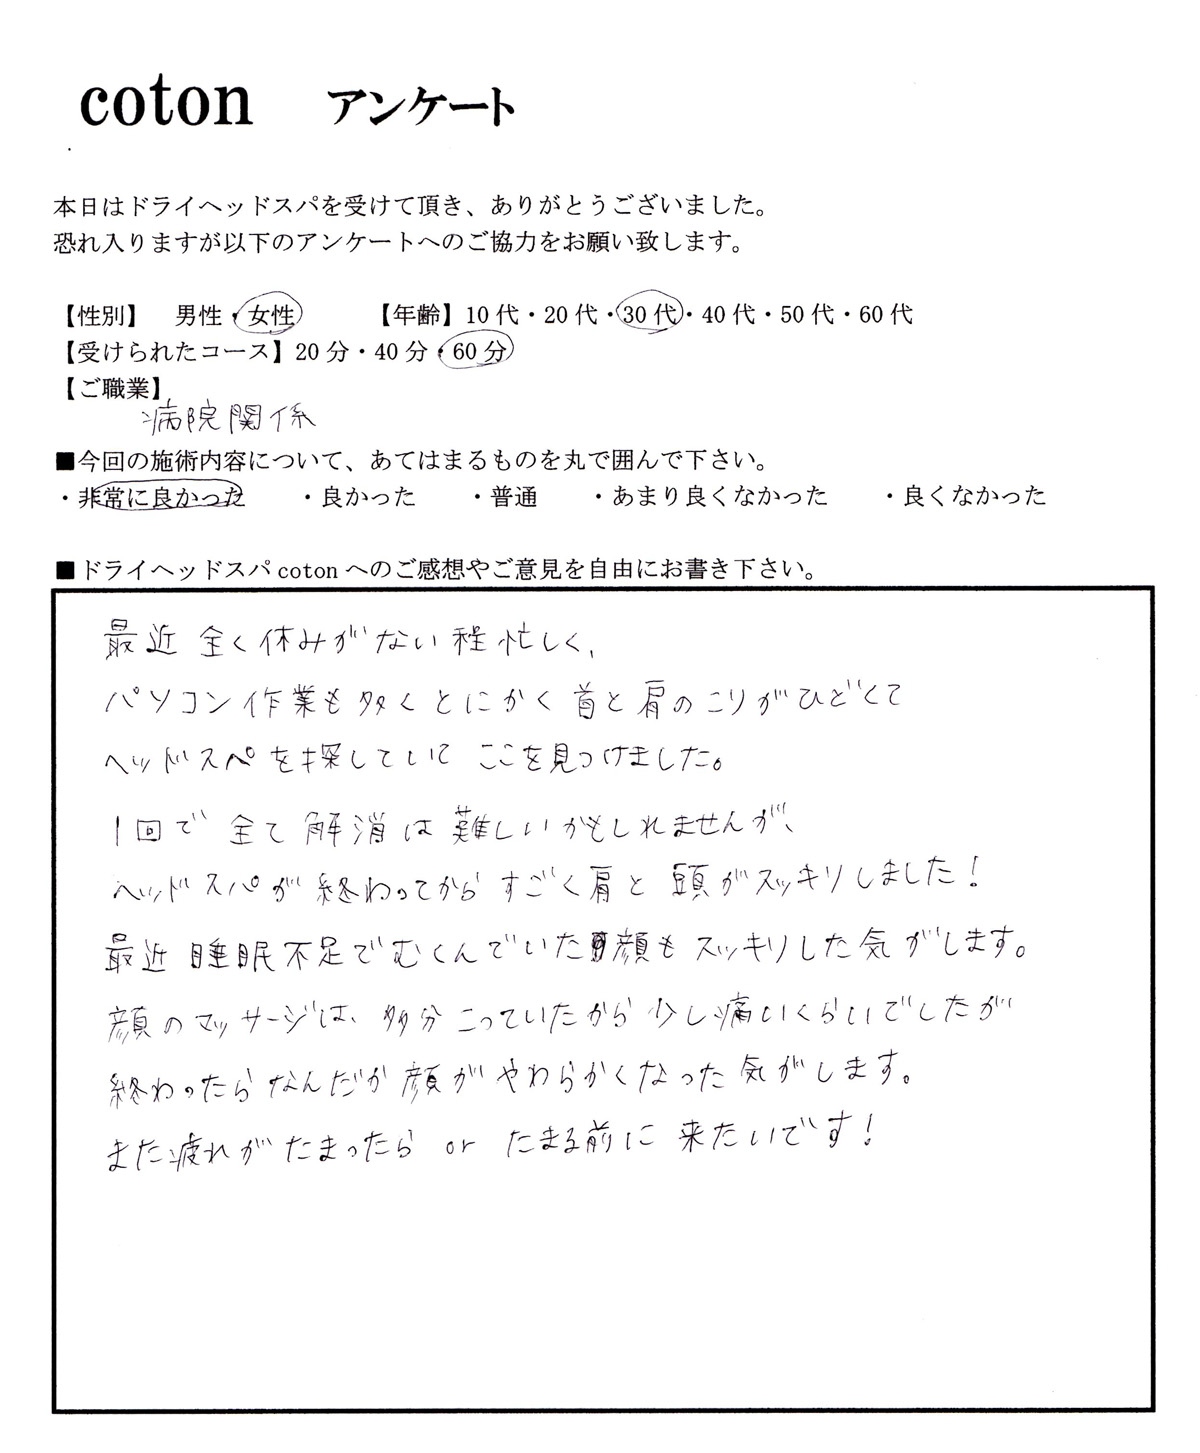 coton アンケート
本日はドライヘッドスパを受けて頂き、ありがとうございました。
恐れ入りますが以下のアンケートへのご協力をお願い致します。
【性別】 男性・女性 【年齢】10代・20代・30代・40代・50代・60代
【受けられたコース】20分・40分・60分
【ご職業】
病院関係
■今回の施術内容について、あてはまるものを丸で囲んで下さい。
・非常に良かった ・良かった ・普通 ・あまり良くなかった ・良くなかった
■ドライヘッドスパcotonへのご感想やご意見を自由にお書き下さい。
最近 全く休みがない程忙しく、
パソコン作業も多くとにかく首と肩のこりがひどくて
ヘッドスペを探していて ここを見つけました。
1回で 全て解消は難しいかもしれませんが、
ヘッドスパが終わってから すごく肩と 頭がスッキリしました!
最近 睡眠不足でむくんでいた顔も スッキリした気がします。
顔のマッサージは、多分こっていたから 少し痛いくらいでしたが
終わったら なんだか顔が やわらかくなった気がします。
また疲れが たまったら or たまる前に 来たいです!